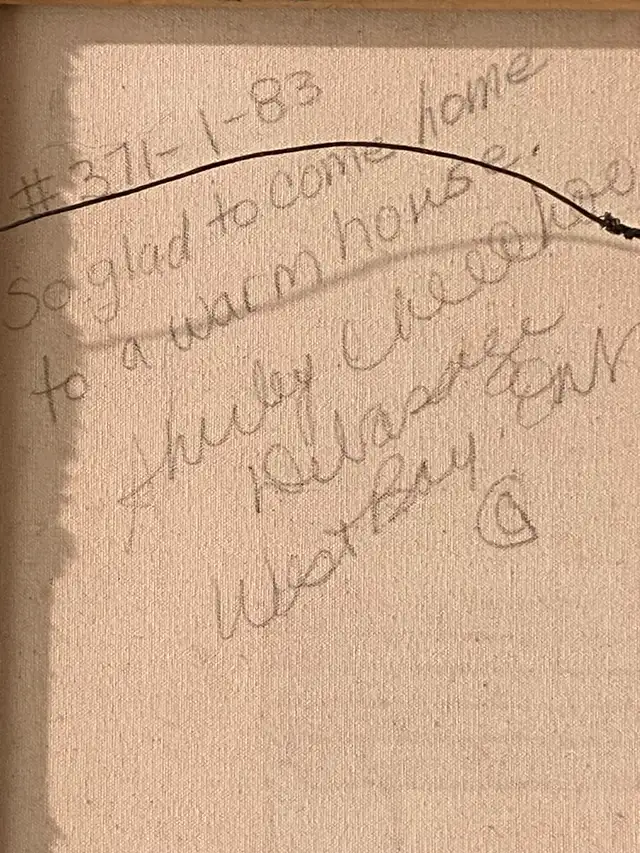 #371-1-83
So glad to come home
to a warm house.
Shirley Cheechoo
West Bay. Ont